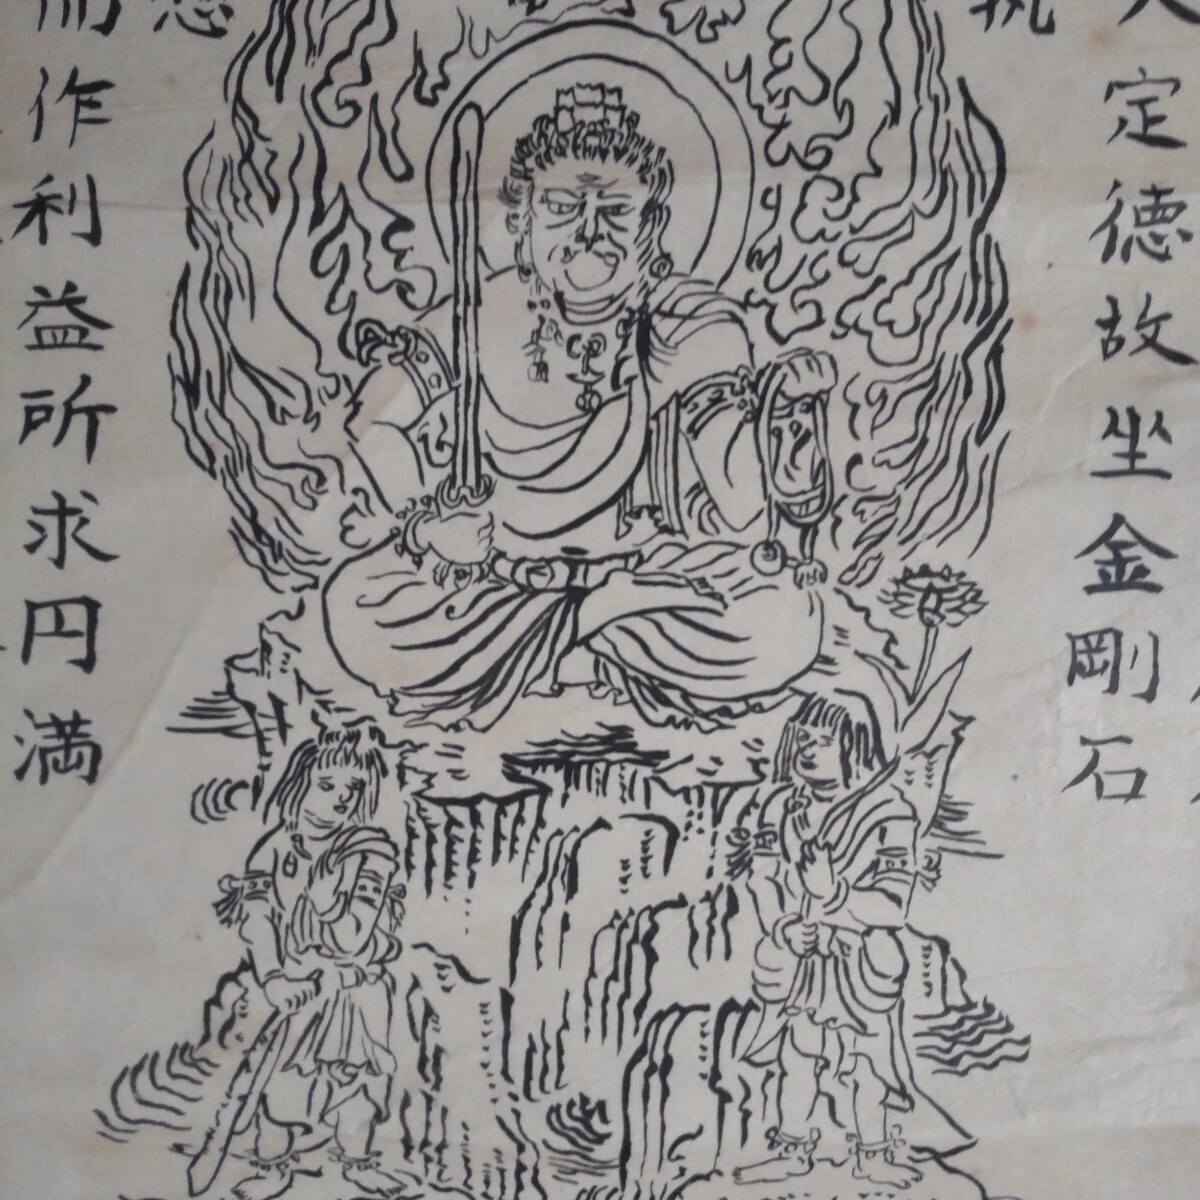 定徳故坐金剛石
而作利益所求円満